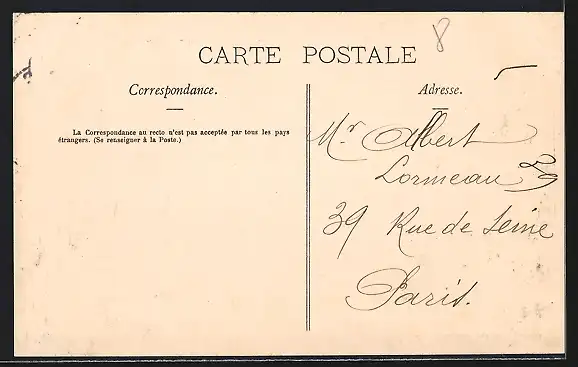 8
CARTE POSTALE
Correspondance.
La Correspondance au recto n'est pas acceptée par tous les pays
étrangers. (Se renseigner à la Poste.)
Adresse.
Mr Albert
Lormeau
39 Rue de Seine
Paris.